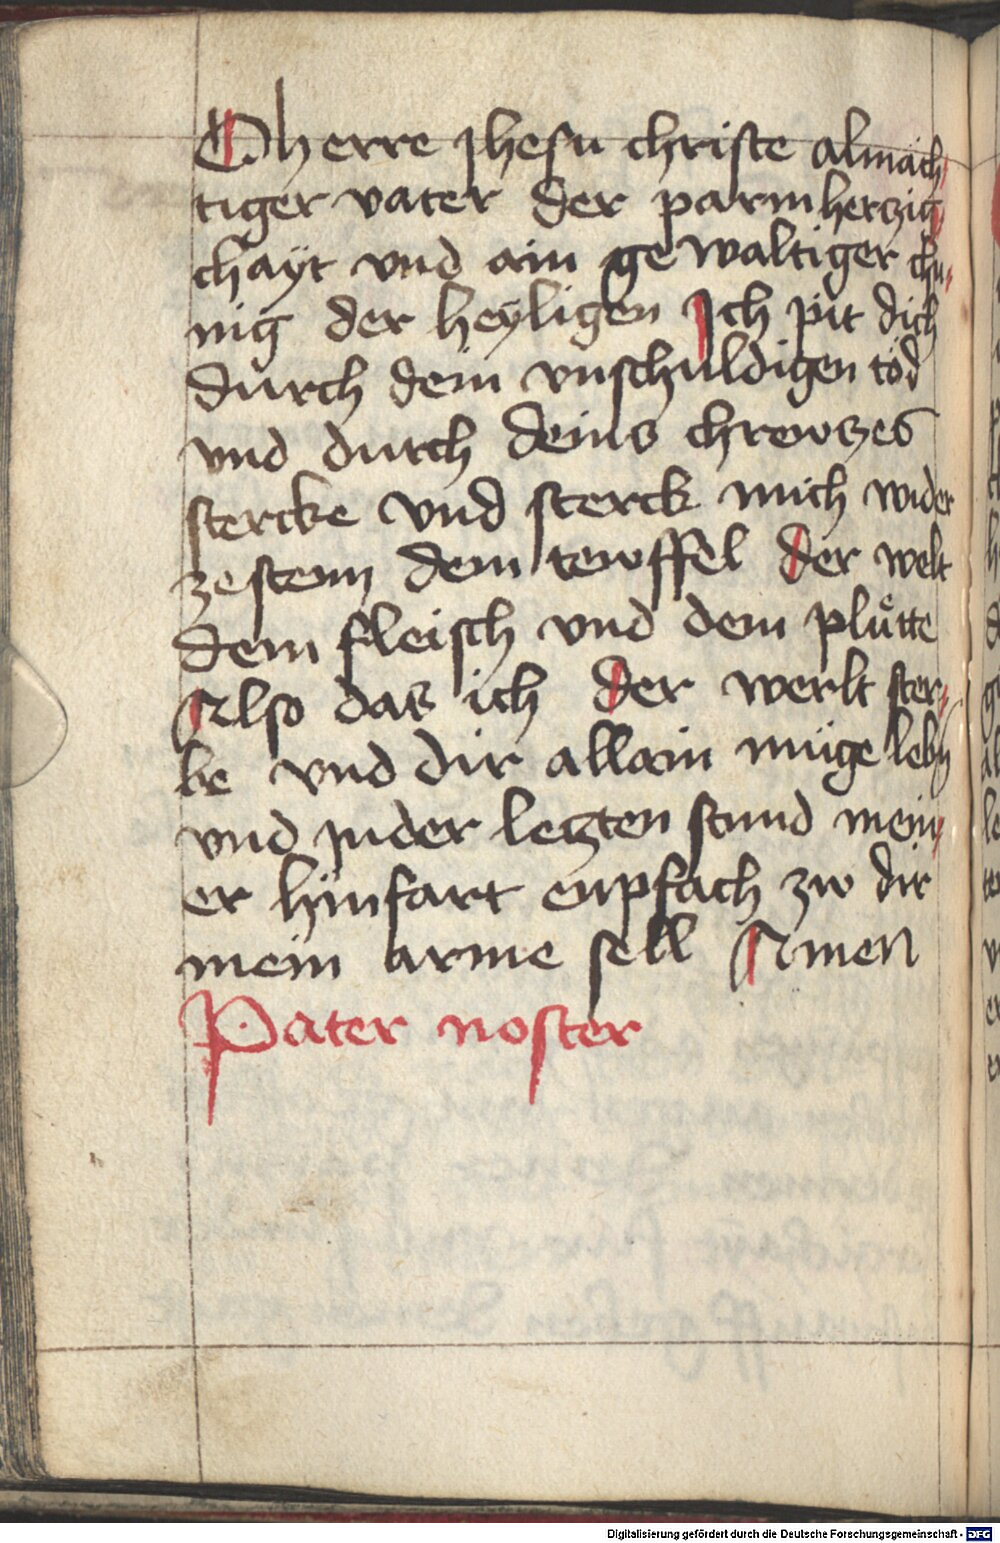 O herre Jhesu christe almäch
tiger vater der parmherczig
chayt vnd ain gewaltiger chu
nig der heyligen Ich pit dich
durch dein vnschuldigen tod
vnd durch deins chrewczes
stercke vnd sterck mich wider
zesten dem tewffel der welt
dem fleisch vnd dem plůtte
Also das ich der werlt ster
be vnd dir allain müge lebn
vnd in der letzten stund mein
er hinfart enpfach zw dir
mein arme sell Amen
Pater noster
Digitalisierung gefördert durch die Deutsche Forschungsgemeinschaft - DFG